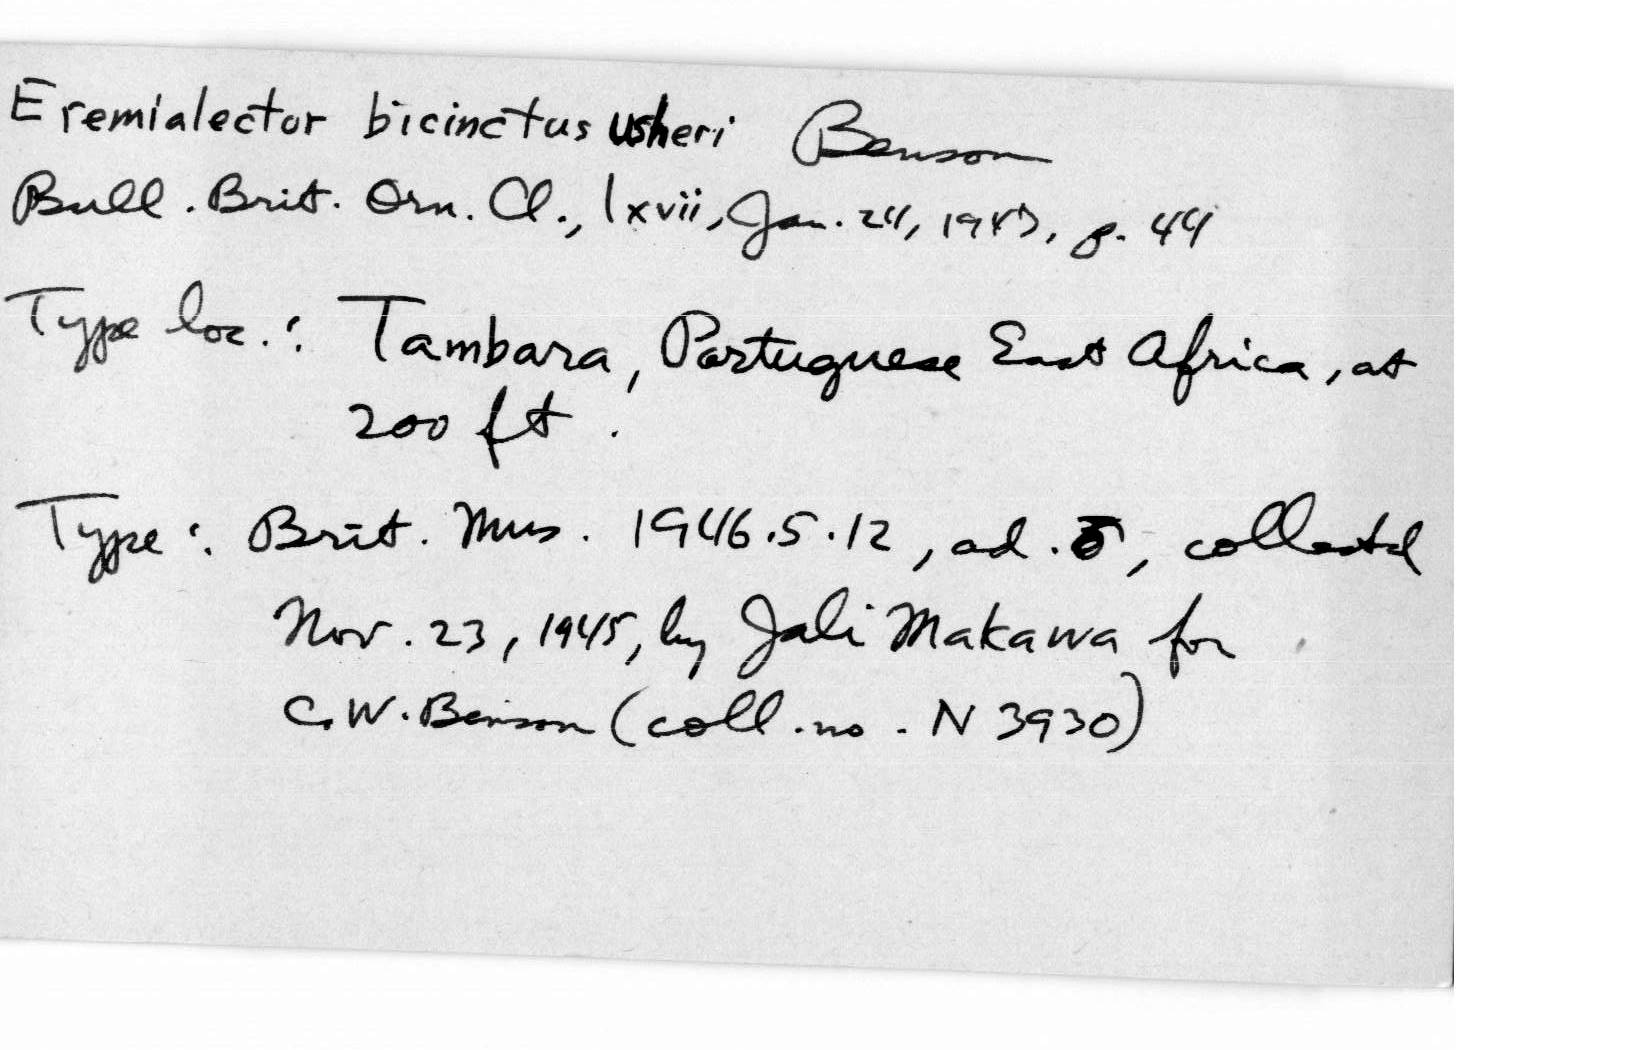 Eremialector bicinctus usheri Benson
Bull. Brit. Orn. Cl., lxvii, Jan. 24, 1947, p. 44
Type loc.: Tambara, Portuguese East Africa, at
200 ft.
Type: Brit. Mus. 1946.5.12, ad. ♂, collected
Nov. 23, 1945, by Jali Makawa for
C.W. Benson (coll. no. N 3930)